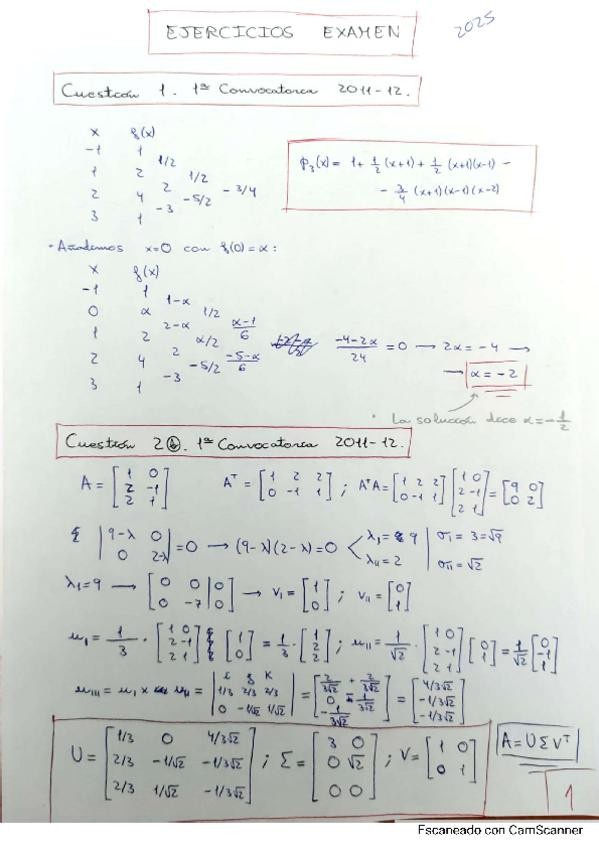 EJERCICIOS EXAMEN 2025
Cuestión 1. 1ª Convocatoria 2011-12.
x f(x)
-1 1
1/2
1 2 1/2
2 -3/4
2 4 -5/2
-3
3 1
p₃(x) = 1 + 1/2 (x+1) + 1/2 (x+1)(x-1) -
- 3/4 (x+1)(x-1)(x-2)
· Añademos x=0 con f(0)=α:
x f(x)
-1 1
1-α
0 α 1/2
2-α (α-1)/6
1 2 α/2
2 (-5-α)/6
2 4 -5/2
-3
3 1
(-4-2α)/24 = 0 → 2α = -4 →
→ α = -2
· La solución dice α = -1/2
Cuestión 2b. 1ª Convocatoria 2011-12.
A = [1 0; 2 -1; 2 1] Aᵀ = [1 2 2; 0 -1 1] ; AᵀA = [1 2 2; 0 -1 1] [1 0; 2 -1; 2 1] = [9 0; 0 2]
|9-λ 0; 0 2-λ| = 0 → (9-λ)(2-λ) = 0 < λI = 9 | σI = 3 = √9
λII = 2 | σII = √2
λI = 9 → [0 0 | 0; 0 -7 | 0] → vI = [1; 0] ; vII = [0; 1]
uI = 1/3 · [1 0; 2 -1; 2 1] [1; 0] = 1/3 · [1; 2; 2] ; uII = 1/√2 · [1 0; 2 -1; 2 1] [0; 1] = 1/√2 [0; -1; 1]
uIII = uI x uII = |i j k; 1/3 2/3 2/3; 0 -1/√2 1/√2| = [2/3√2 + 2/3√2; 0 - 1/3√2; -1/3√2] = [4/3√2; -1/3√2; -1/3√2]
U = [1/3 0 4/3√2; 2/3 -1/√2 -1/3√2; 2/3 1/√2 -1/3√2] ; Σ = [3 0; 0 √2; 0 0] ; V = [1 0; 0 1]
A = UΣVᵀ
1
Escaneado con CamScanner